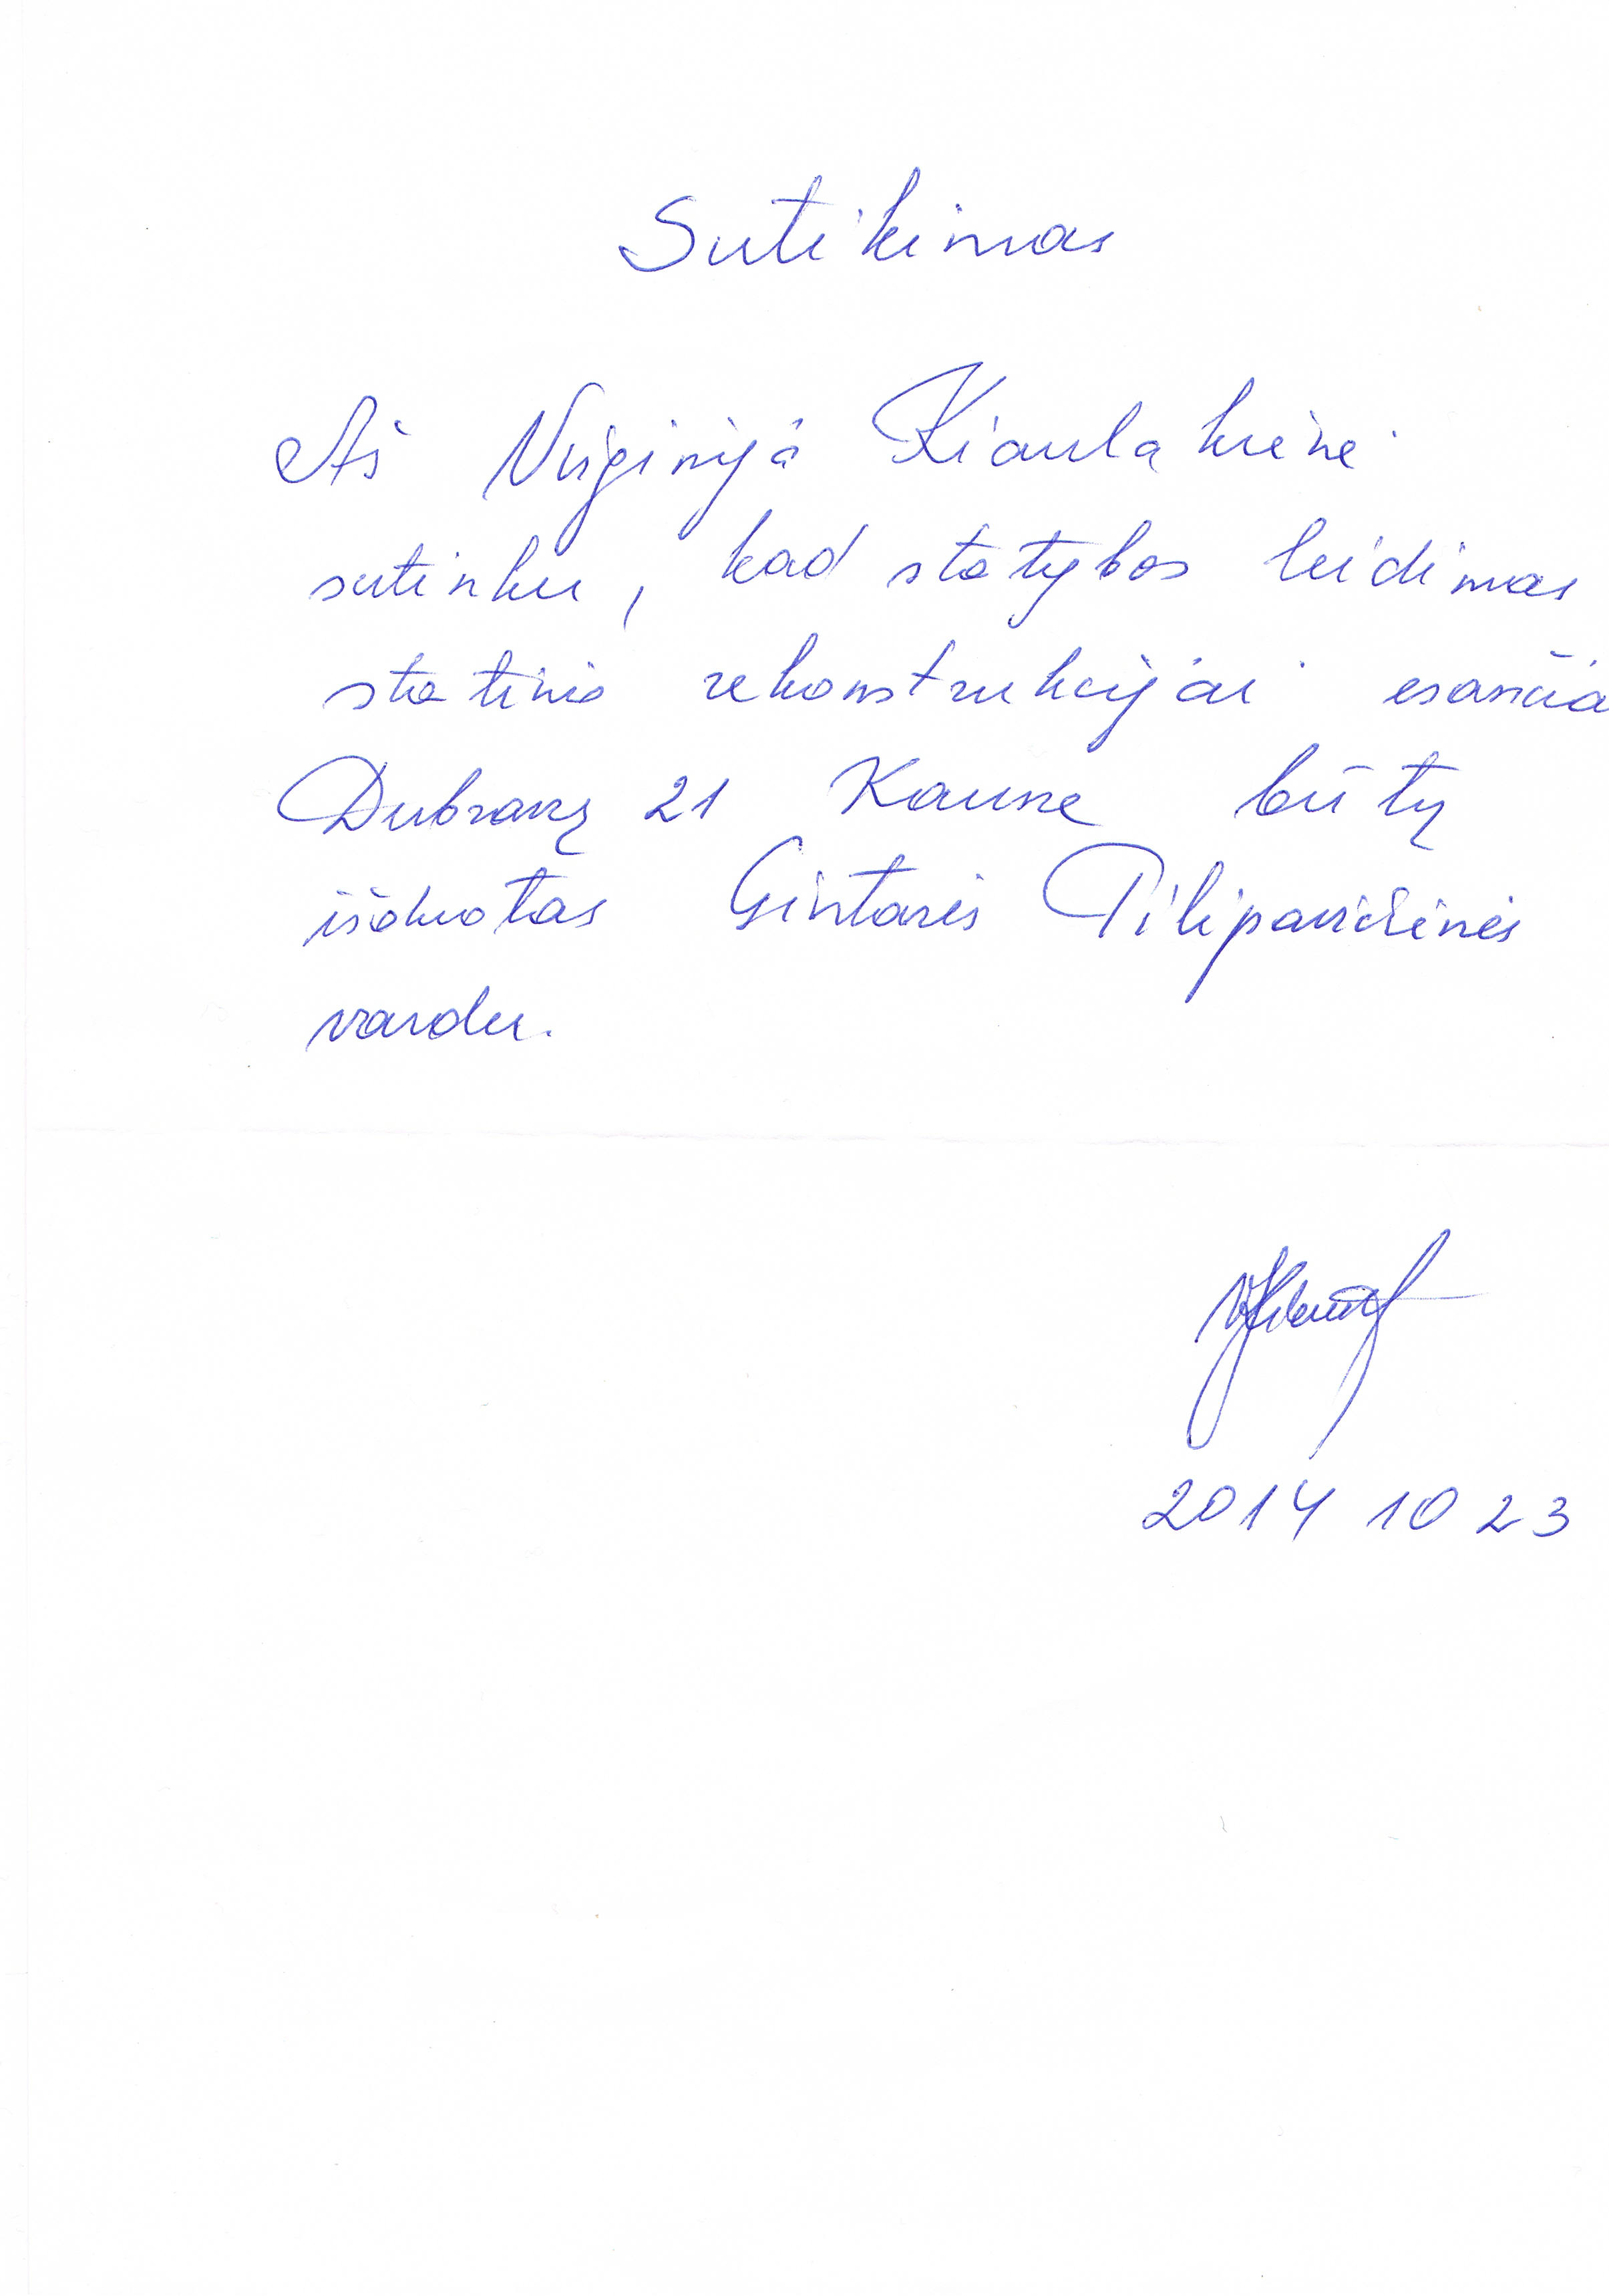 Sutikimas
Aš Virginija Kiaulakienė
sutinku, kad statybos leidimas
statinio rekonstrukcijai esančia
Dubravų 21 Kaune būtų
išduotas Gintarės Pilipavičienės
vardu.
2014 10 23